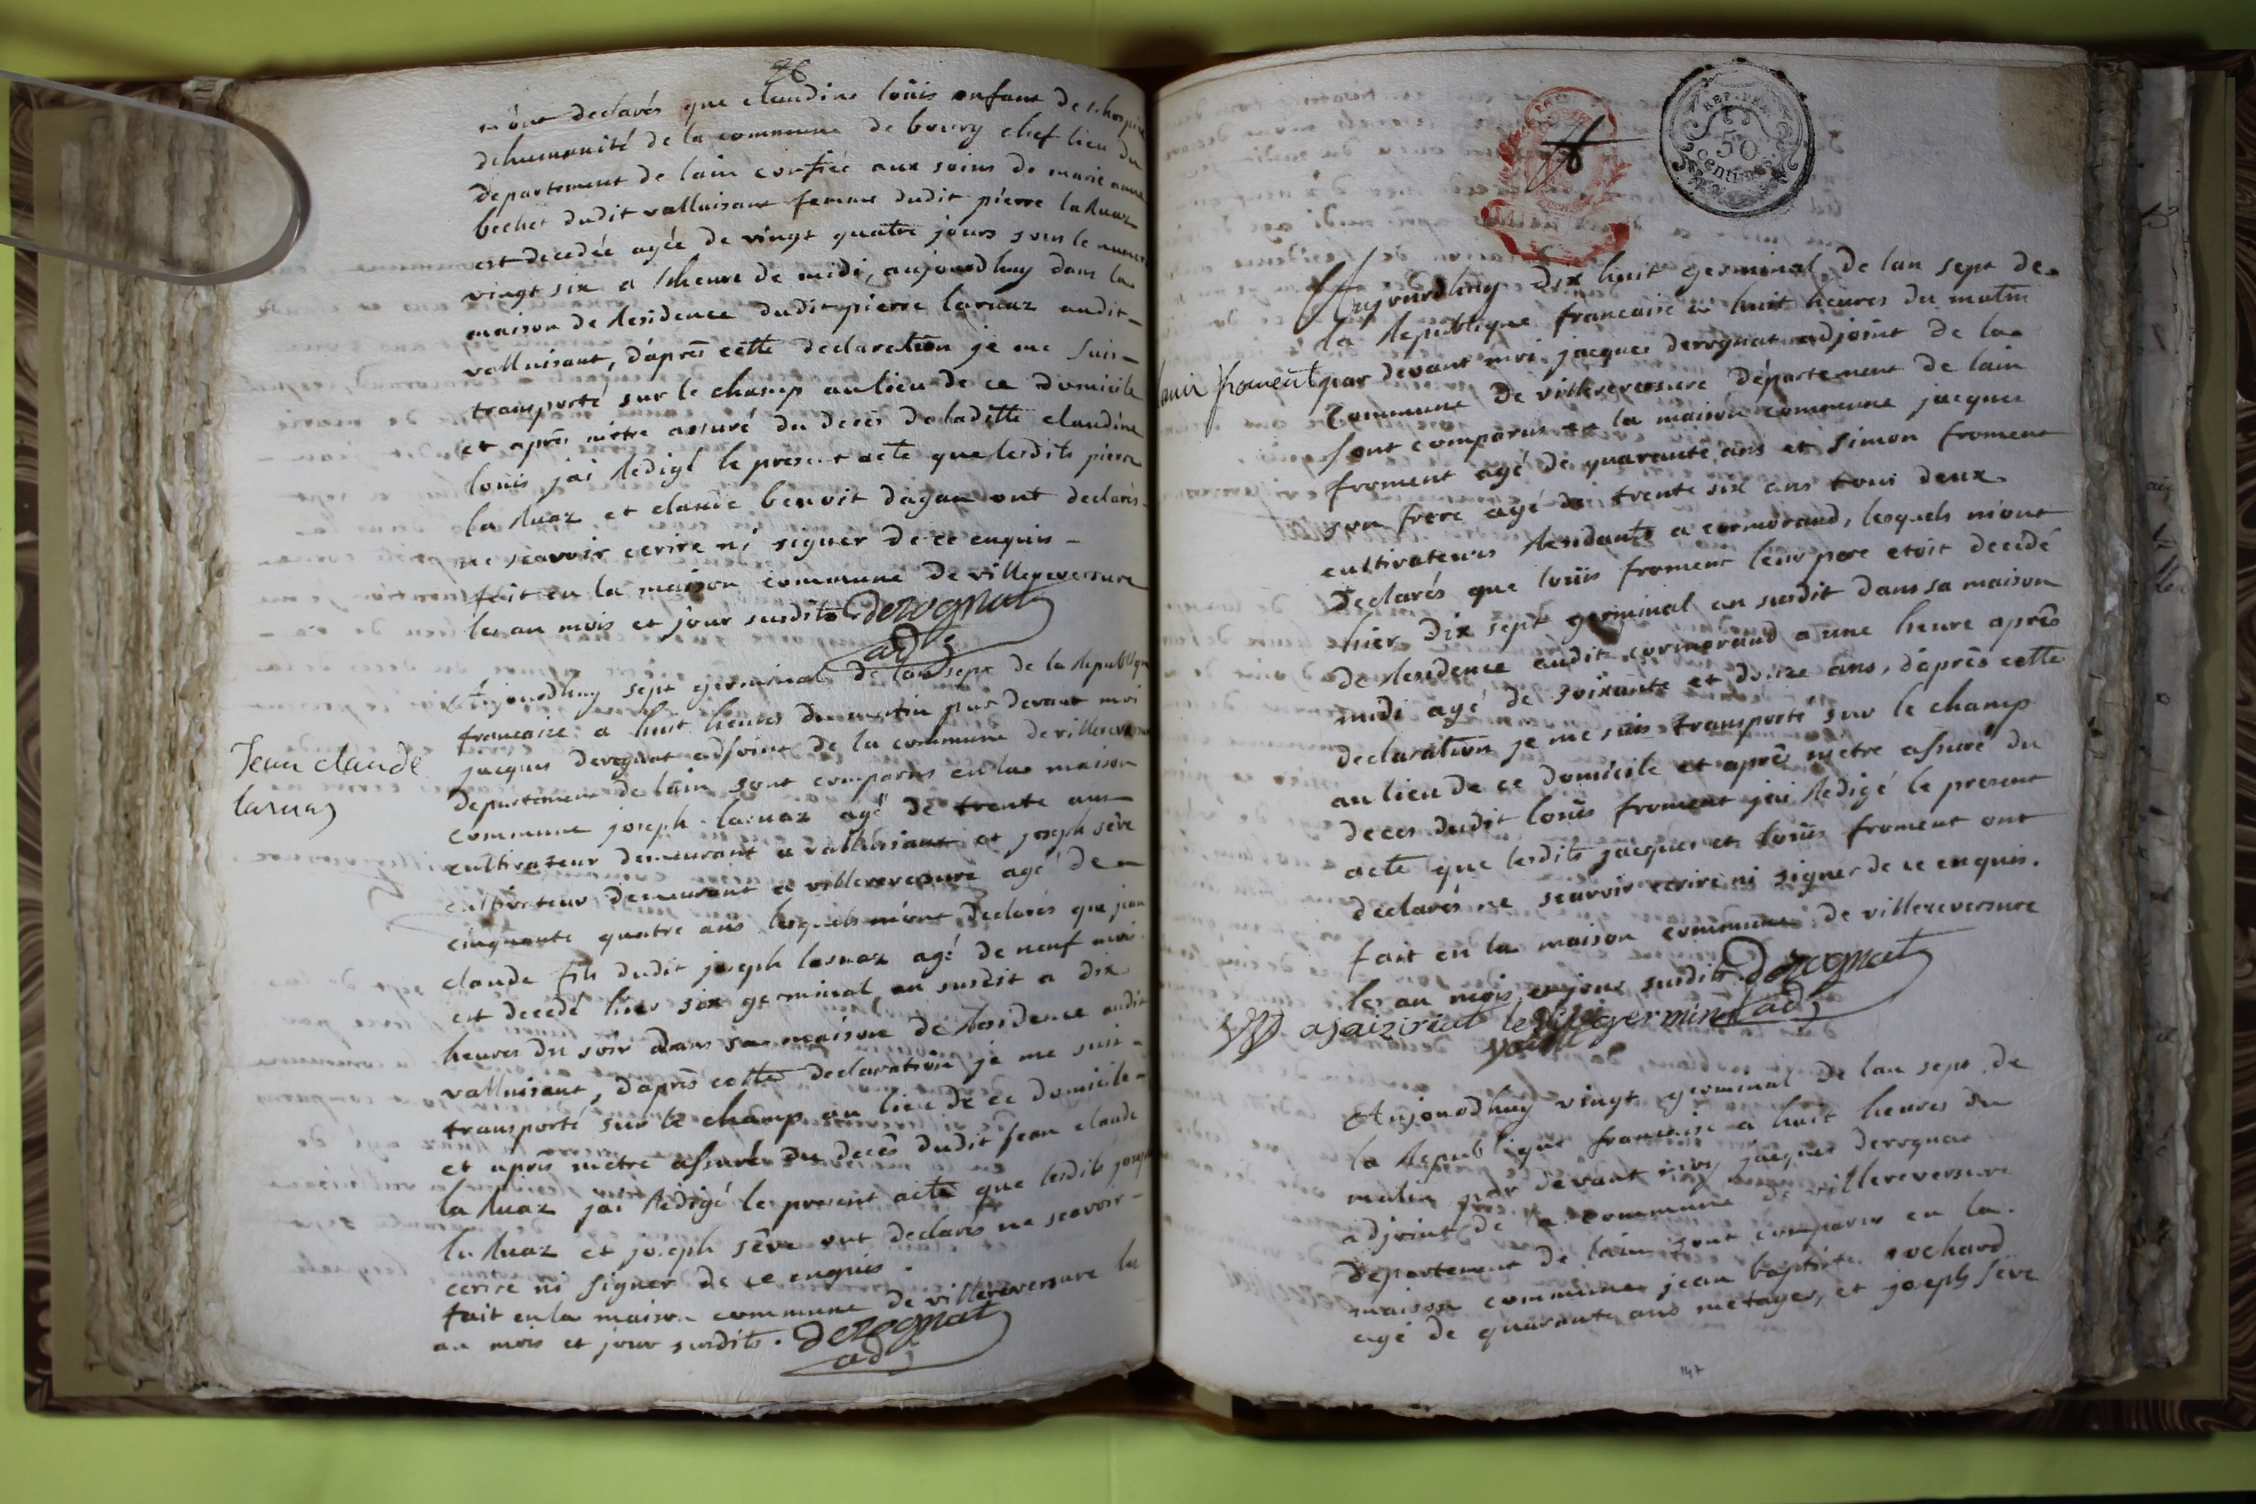 m'ont declarés que claudine loüis enfant de l'hospice
dhumanité de la commune de bourg chef lieu du
departement de lain confiée aux soins de marie anne
bechet dudit valluisant femme dudit pierre laruaz
est decedée agée de vingt quatre jours sous le numero
vingt six a lheure de midi, aujourdhuy dans la
maison de Residence dudit pierre laruaz audit
valluisant, dáprês cette declaration je me suis
transporté sur le champ au lieu de ce domicile
et aprês m'etre assuré du decês de laditte claudine
loüis jai Redigé le present acte que lesdits pierre
la Ruaz et claude benoit dagan ont declarés
ne scavoir ecrire ni signer de ce enquis
fait en la maison commune de villereversure
les an mois et jour susdits derognat
adj
Aujourdhuy sept germinal de lan sept de la Republique
francaise a huit heures du matin par devant moi
jacques derognat adjoint de la commune de villereversure
Jean claude
laruaz
departement de lain sont comparus en la maison
commune joseph laruaz agé de trente ans
cultivateur demeurant a valluisant et joseph sêve
cultivateur demeurant a villereversure agé de
cinquante quatre ans lesquels m'ont declarés que jean
claude fils dudit joseph laruaz agé de neuf mois
est decedé hier six germinal an susdit a dix
heures du soir dans sa maison de Residence audit
valluisant, dáprês cette declaration je me suis
transporté sur le champ au lieu de ce domicile
et aprês m'etre assuré du decês dudit jean claude
la Ruaz jai Rédigé le present acte que lesdits joseph
la Ruaz et joseph sêve ont declarés ne scavoir
ecrire ni signer de ce enquis.
fait en la maison commune de villereversure les
an mois et jour susdits. derognat
adj
REP. FRA.
50
centimes
Aujourdhuy dix huit germinal de lan sept de
la Republique francaise a huit heures du matin
louis froment
par devant moi jacques derognat adjoint de la
commune de villereversure département de lain
sont comparus en la maison commune jacques
froment agé de quarante ans et simon froment
son frere agé de trente six ans tous deux
cultivateurs Residants a cormorand, lesquels m'ont
declarés que loüis froment leur pere etoit decedé
hier dix sept germinal an susdit dans sa maison
de Residence audit cormorand a une heure aprês
midi agé de soixante et douze ans, dáprês cette
declaration je me suis transporté sur le champ
au lieu de ce domicile et aprês m'etre assuré du
deces dudit loüis froment jai Redigé le present
acte que lesdits jacques et loüis froment ont
declarés ne scavoir ecrire ni signer de ce enquis.
fait en la maison commune de villereversure
les an mois et jour susdits derognat
adj
germinal
Aujourdhuy vingt germinal de lan sept de
la Republique francaise a huit heures du
matin par devant moy jacques derognat
adjoint de la commune de villereversure
departement de lain sont comparus en la
maison commune jean baptiste rochard
agé de quarante ans metager, et joseph seve
147